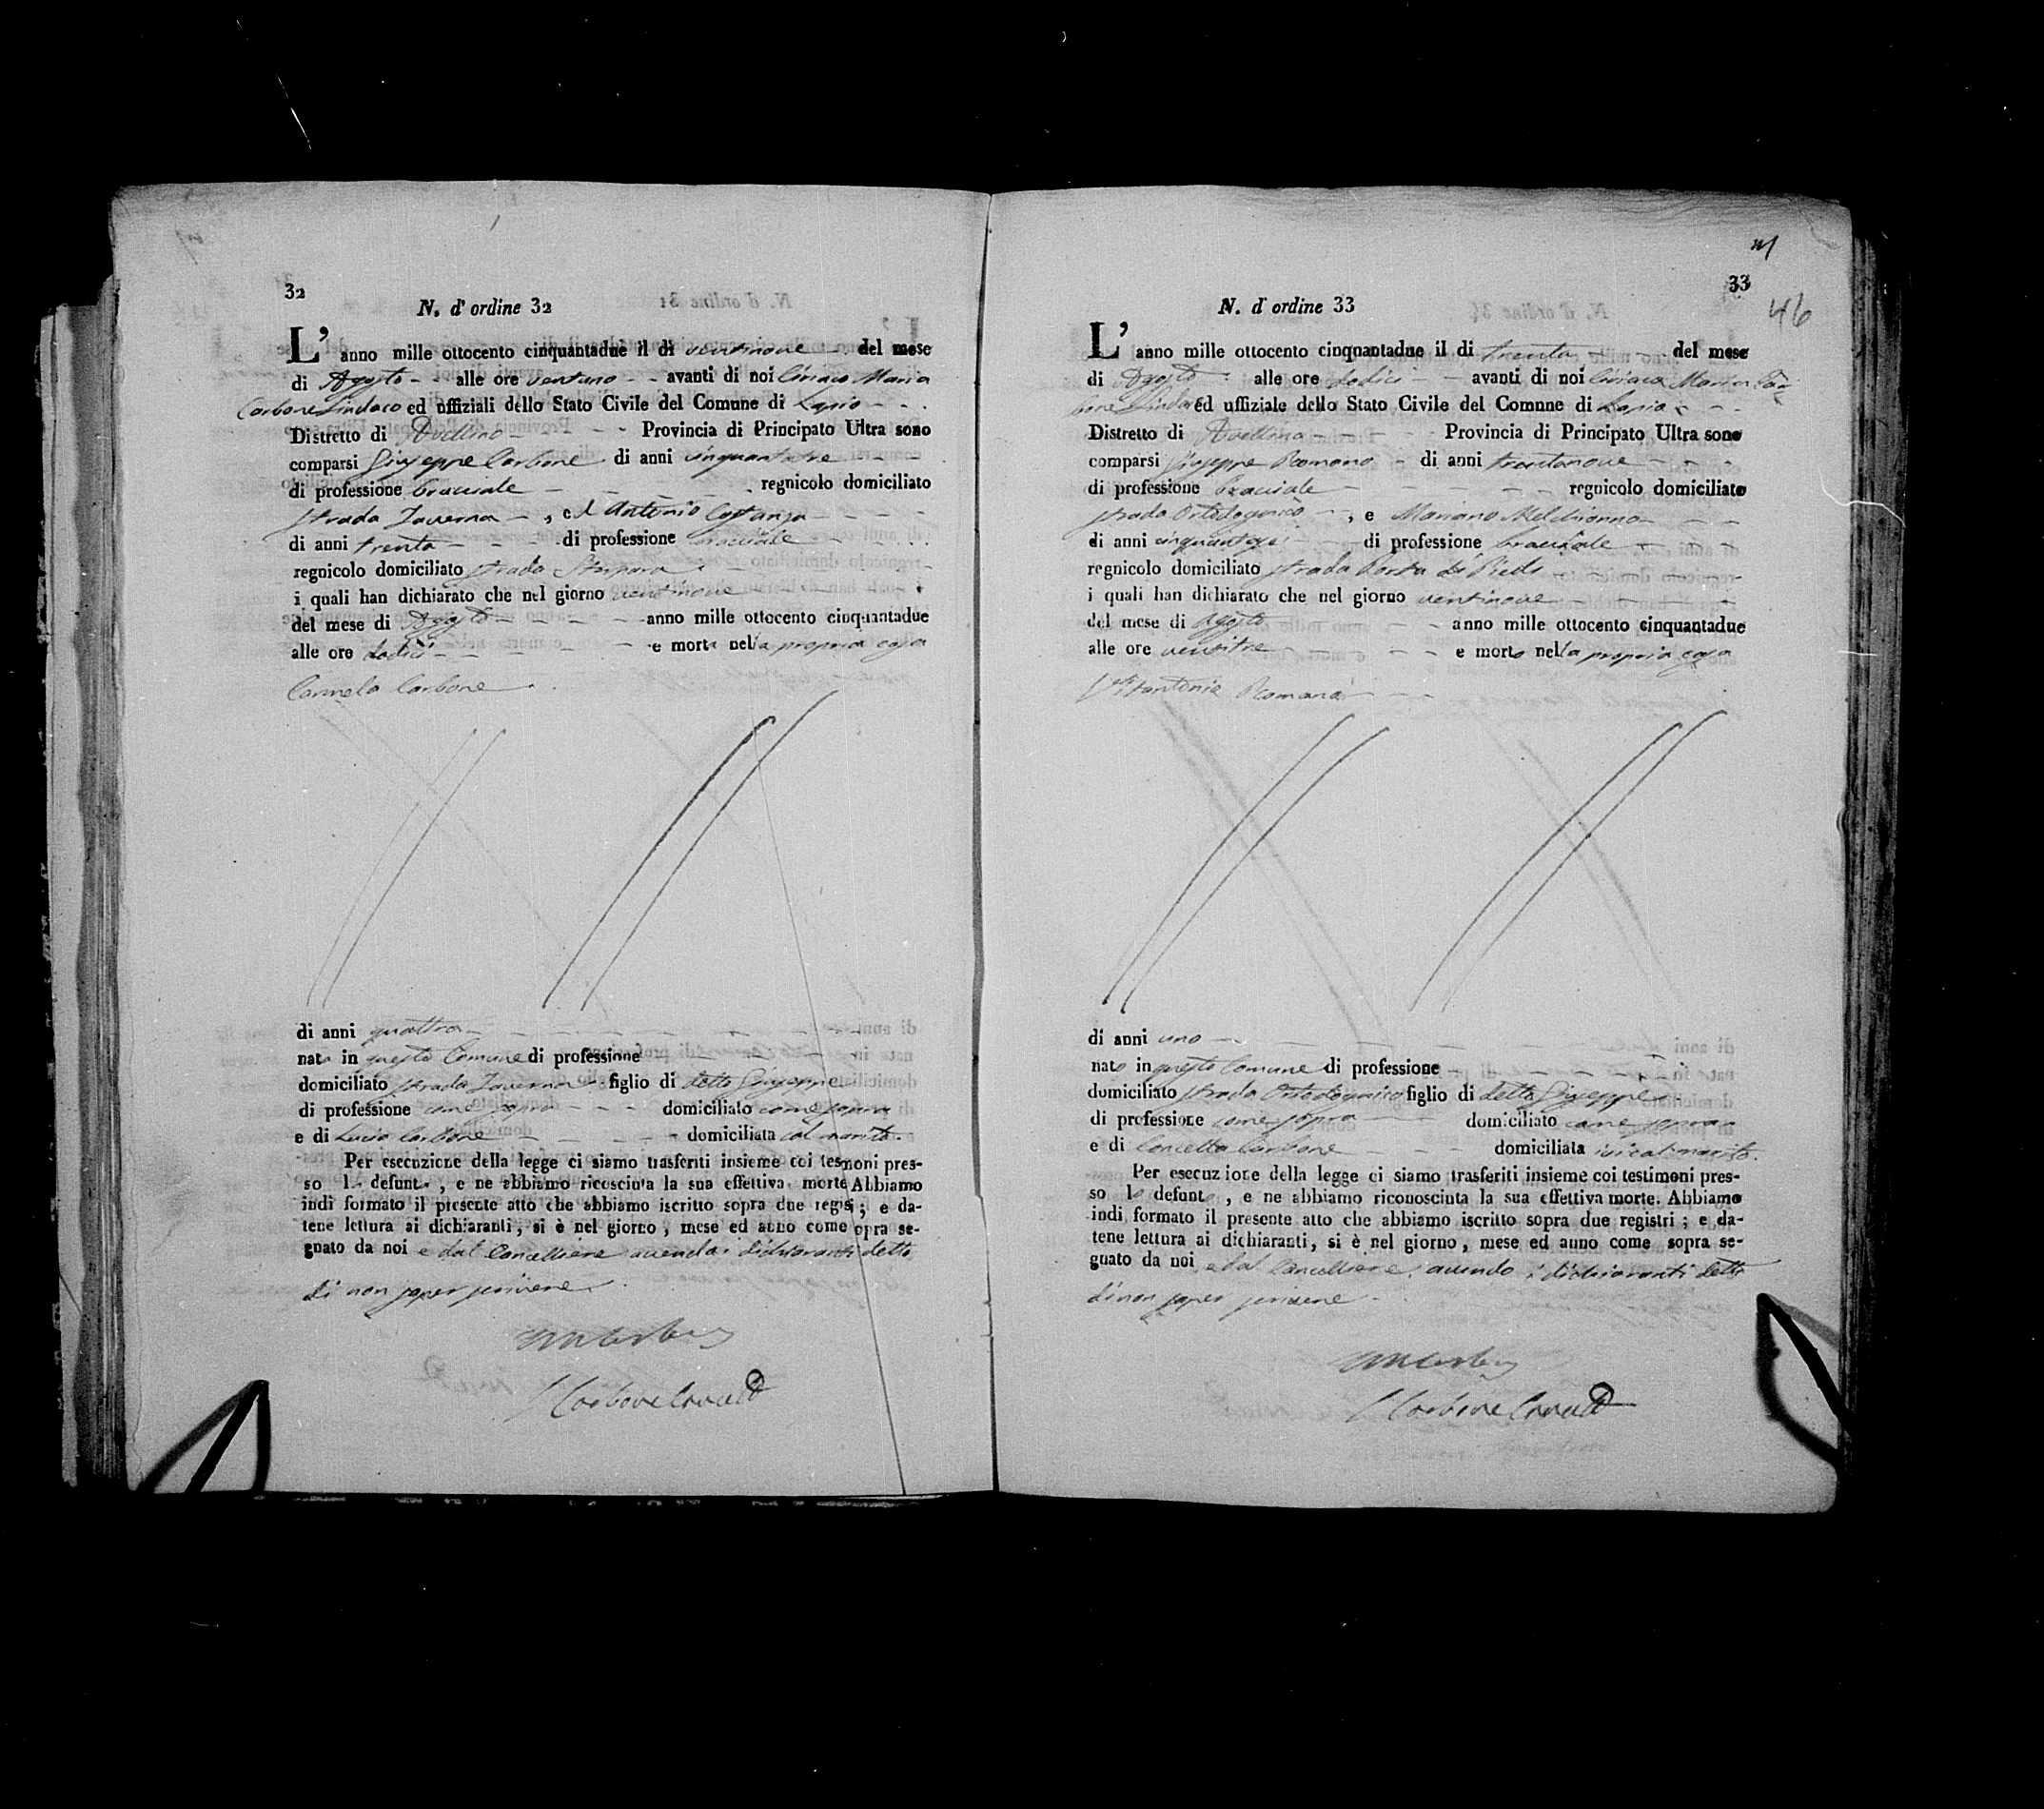 32
N. d'ordine 32
L'anno mille ottocento cinquantadue il di ventinove del mese
di Agosto alle ore ventuno avanti di noi Ciriaco Maria
Carbone Sindaco ed uffiziali dello Stato Civile del Comune di Lapio
Distretto di Avellino Provincia di Principato Ultra sono
comparsi Giuseppe Carbone di anni cinquantatre
di professione bracciale regnicolo domiciliato
strada Taverna , ed Antonio Costanza
di anni trenta di professione bracciale
regnicolo domiciliato strada
i quali han dichiarato che nel giorno ventinove
del mese di Agosto anno mille ottocento cinquantadue
alle ore dodici e morta nella propria casa
Carmela Carbone
di anni quattro
nata in questo Comune di professione
domiciliato strada Taverna figlio di detto Giuseppe
di professione come sopra domiciliato come sopra
e di Lucia Carbone domiciliata col marito.
Per esecuzione della legge ci siamo trasferiti insieme coi tesmoni pres-
so la defunta , e ne abbiamo riconosciuta la sua effettiva morte Abbiamo
indi formato il presente atto che abbiamo iscritto sopra due regis ; e da-
tene lettura ai dichiaranti, si è nel giorno , mese ed anno come opra se-
gnato da noi e dal Cancelliere avendo i dichiaranti detto
di non saper scrivere.
Carbone Canc
33
46
N. d'ordine 33
L'anno mille ottocento cinquantadue il di trenta del mese
di Agosto alle ore dodici avanti di noi Ciriaco Maria Car
bone Sindaco ed uffiziale dello Stato Civile del Comune di Lapio
Distretto di Avellino Provincia di Principato Ultra sono
comparsi Giuseppe Romano di anni trentanove
di professione bracciale regnicolo domiciliato
strada Ortodogonico , e Mariano Melchionno
di anni cinquantasei di professione bracciale
regnicolo domiciliato strada Porta da Piedi
i quali han dichiarato che nel giorno ventinove
del mese di Agosto anno mille ottocento cinquantadue
alle ore ventitre e morto nella propria casa
Vitantonio Romano
di anni uno
nato in questo Comune di professione
domiciliato strada Ortodogonico figlio di detto Giuseppe
di professione come sopra domiciliato come sopra
e di Concetta Carbone domiciliata ivi col marito.
Per esecuzione della legge ci siamo trasferiti insieme coi testimoni pres-
so lo defunto , e ne abbiamo riconosciuta la sua effettiva morte. Abbiamo
indi formato il presente atto che abbiamo iscritto sopra due registri ; e da-
tene lettura ai dichiaranti, si è nel giorno , mese ed anno come sopra se-
gnato da noi e dal Cancelliere, avendo i dichiaranti detto
di non saper scrivere
Carbone Canc